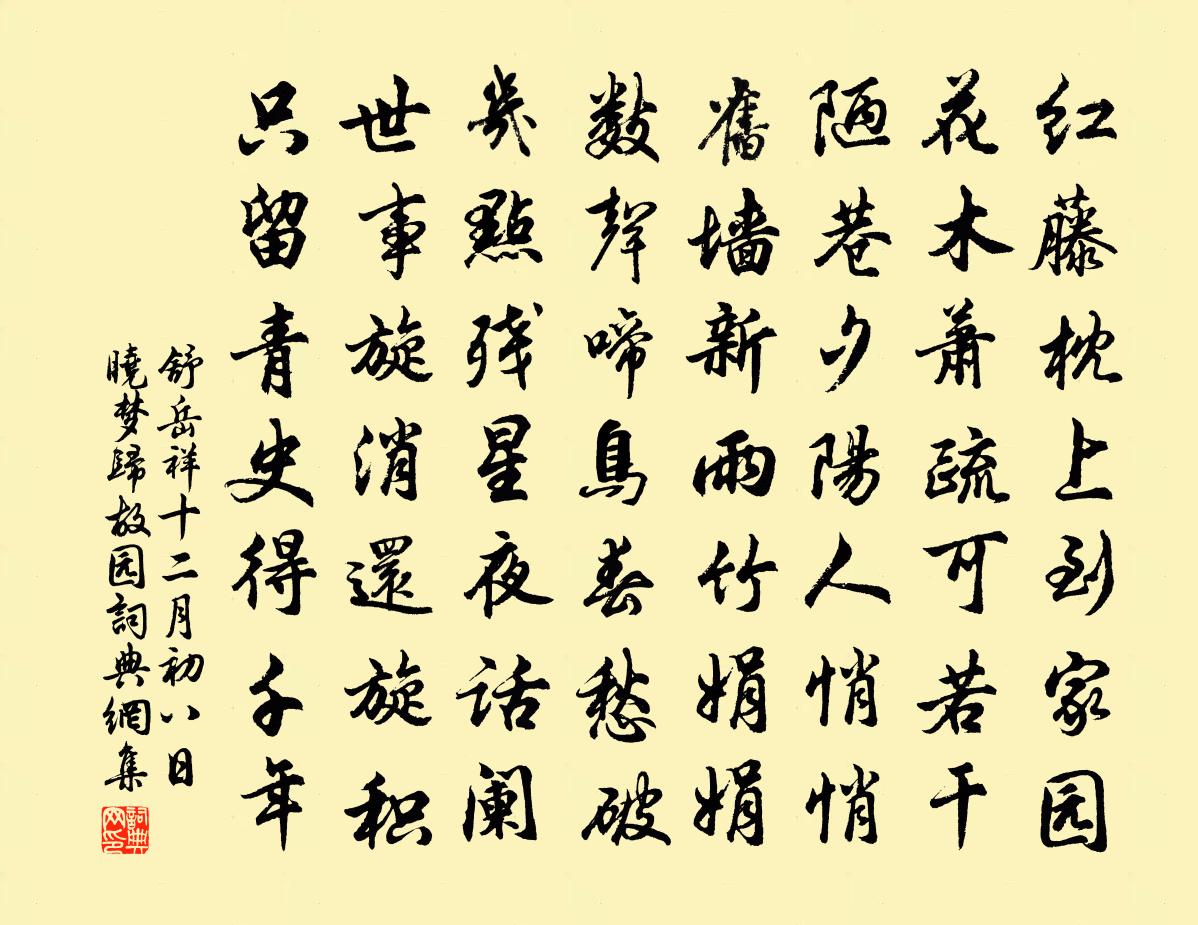 红藤枕上到家园
花木萧疏可若干
陋巷夕陽人悄悄
舊墙新雨竹娟娟
數聲啼鳥春愁破
幾點残星夜话阑
世事旋消還旋积
只留青史得千年
舒岳祥十二月初八日
曉梦歸故园詞典網集
詞典网印